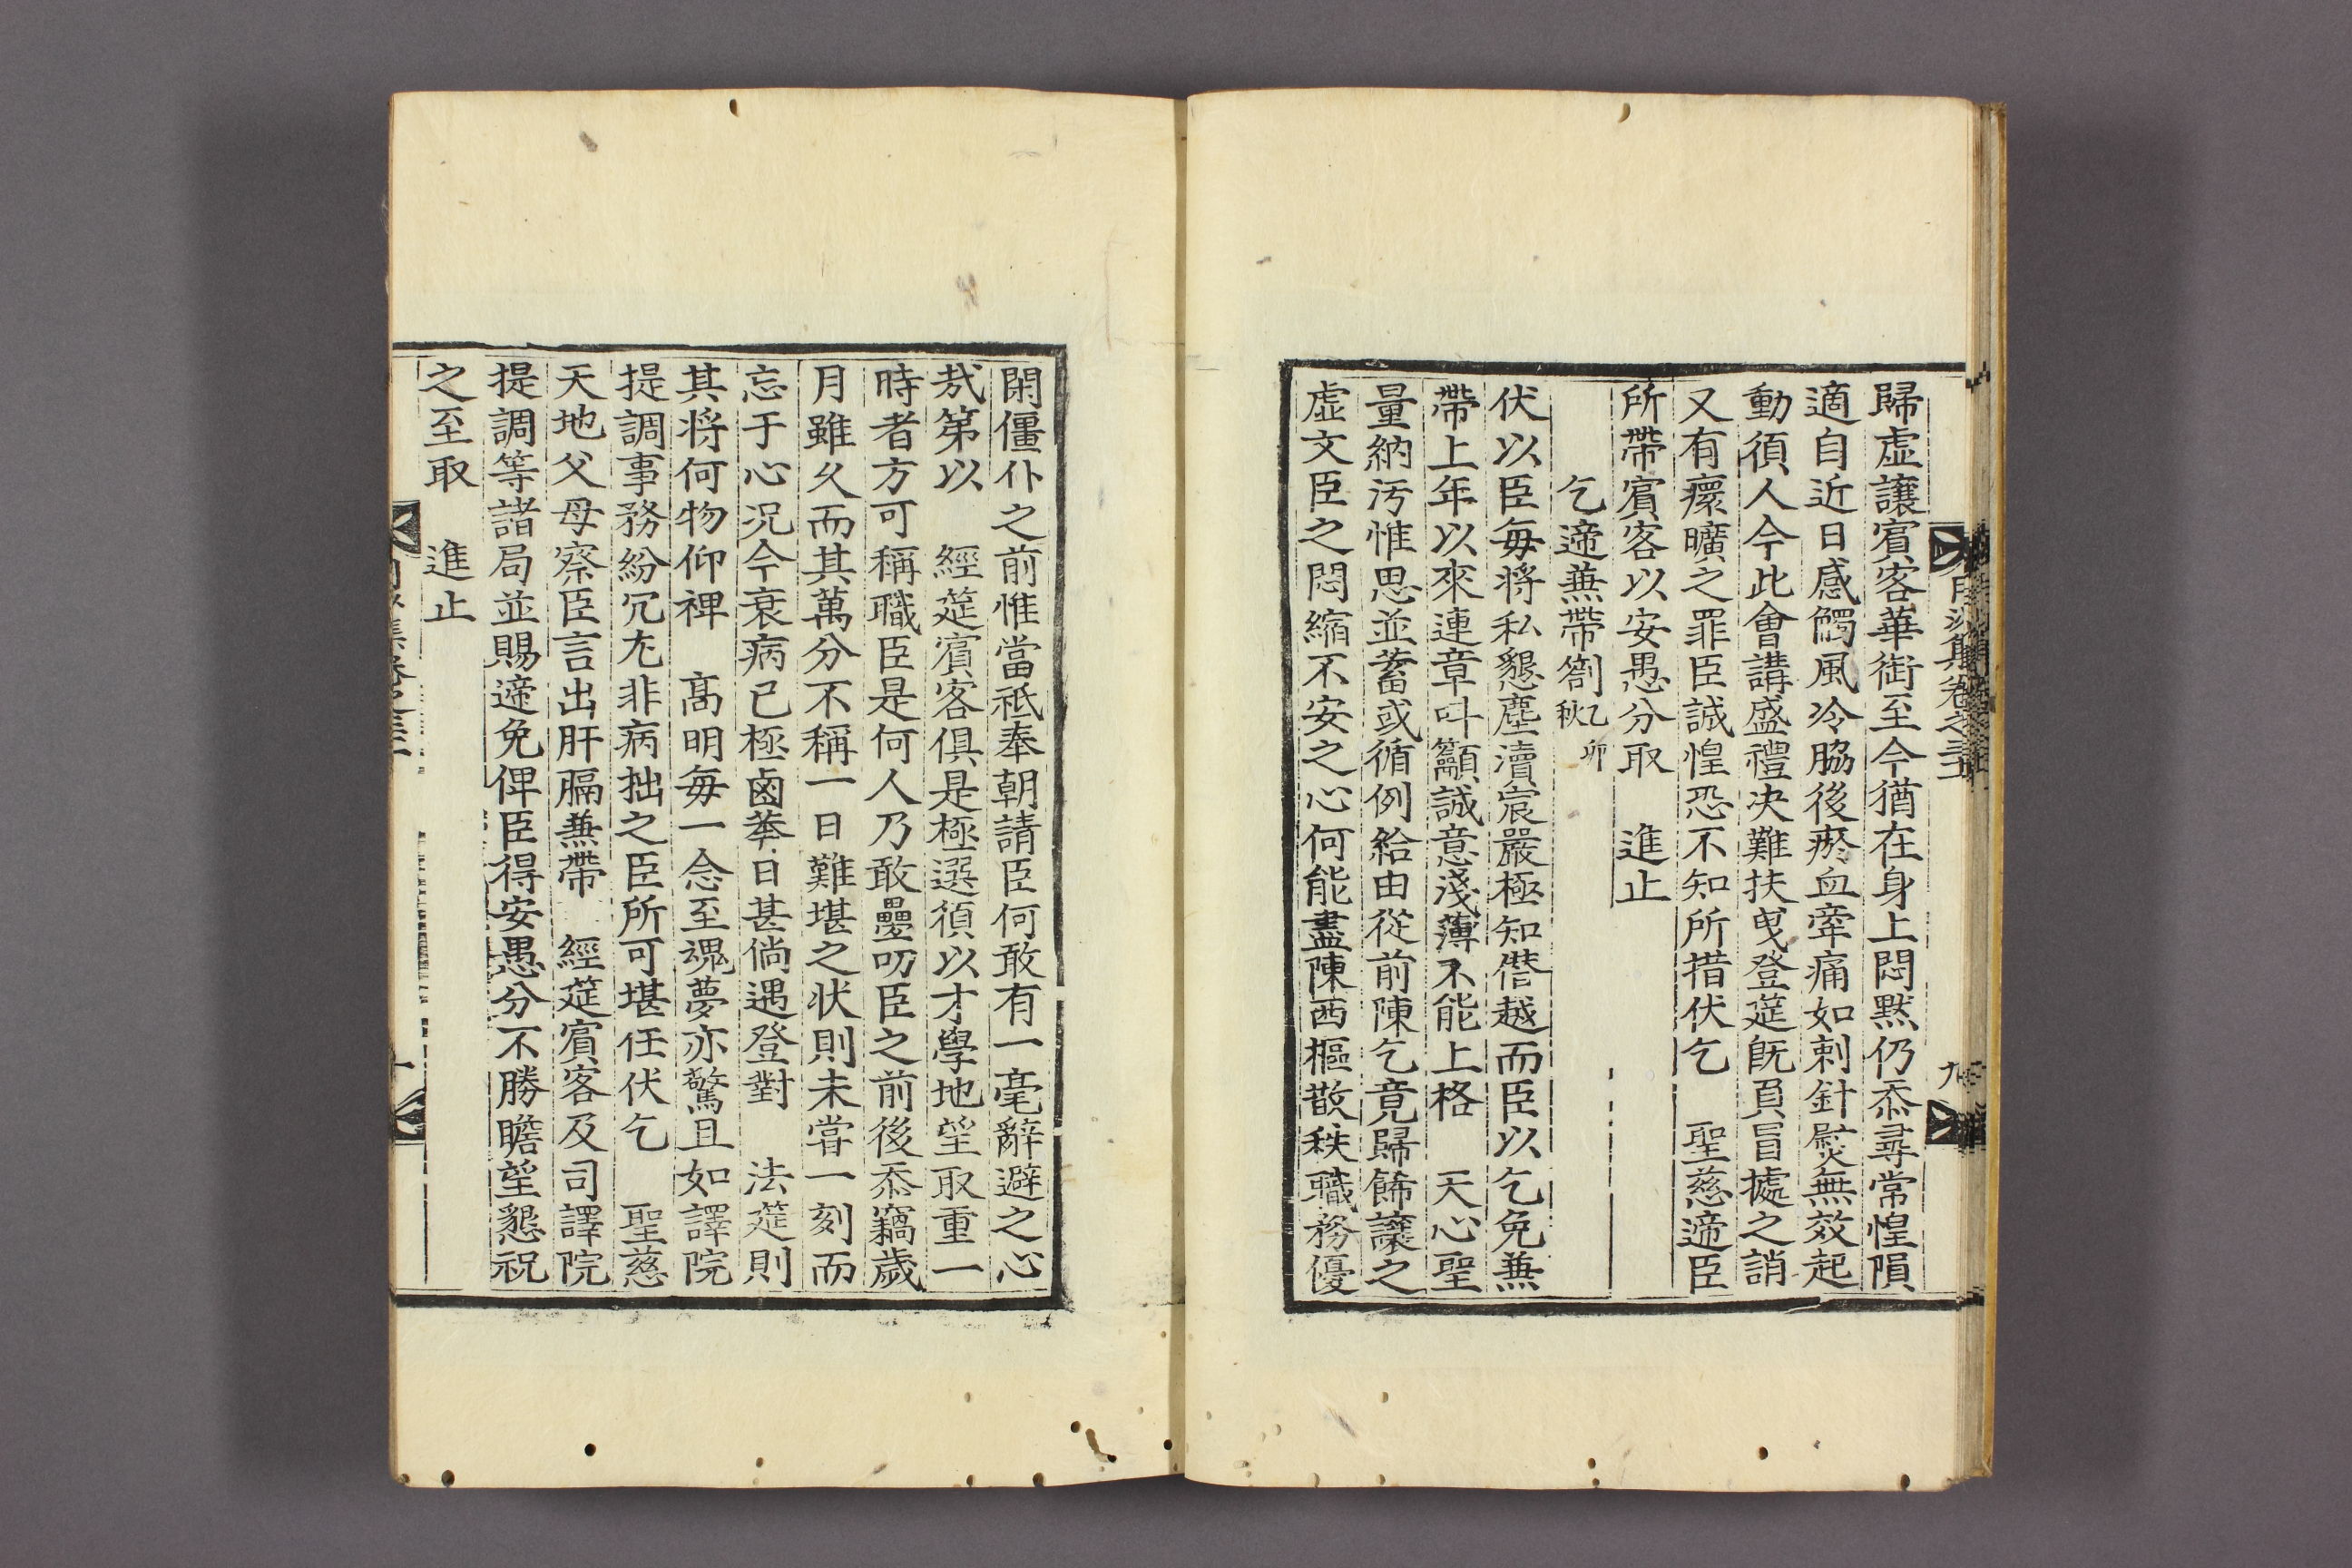 歸虛讓賓客華銜至今猶在身上悶默仍忝尋常惶隕
適自近日感觸風冷脇後瘀血牽痛如刺針熨無效起
動須人今此會講盛禮决難扶曳登筵旣負冒據之誚
又有瘝曠之罪臣誠惶恐不知所措伏乞　聖慈遞臣
所帶賓客以安愚分取　進止
乞遞兼帶箚乙卯秋
伏以臣每將私懇塵瀆宸嚴極知僭越而臣以乞免兼
帶上年以來連章叫籲誠意淺薄不能上格　天心聖
量納汚惟思並蓄或循例給由從前陳乞竟歸餙讓之
虛文臣之悶縮不安之心何能盡陳西樞散秩職務優
閑僵仆之前惟當祗奉朝請臣何敢有一毫辭避之心
㢤第以　經筵賓客俱是極選須以才學地望取重一
時者方可稱職臣是何人乃敢疊叨臣之前後忝竊歲
月雖久而其萬分不稱一日難堪之狀則未嘗一刻而
忘于心况今衰病已極鹵莽日甚倘遇登對　法筵則
其將何物仰裨　高明每一念至魂夢亦驚且如譯院
提調事務紛冗尤非病拙之臣所可堪任伏乞　聖慈
天地父母察臣言出肝膈兼帶　經筵賓客及司譯院
提調等諸局並賜遞免俾臣得安愚分不勝瞻望懇祝
之至取　進止